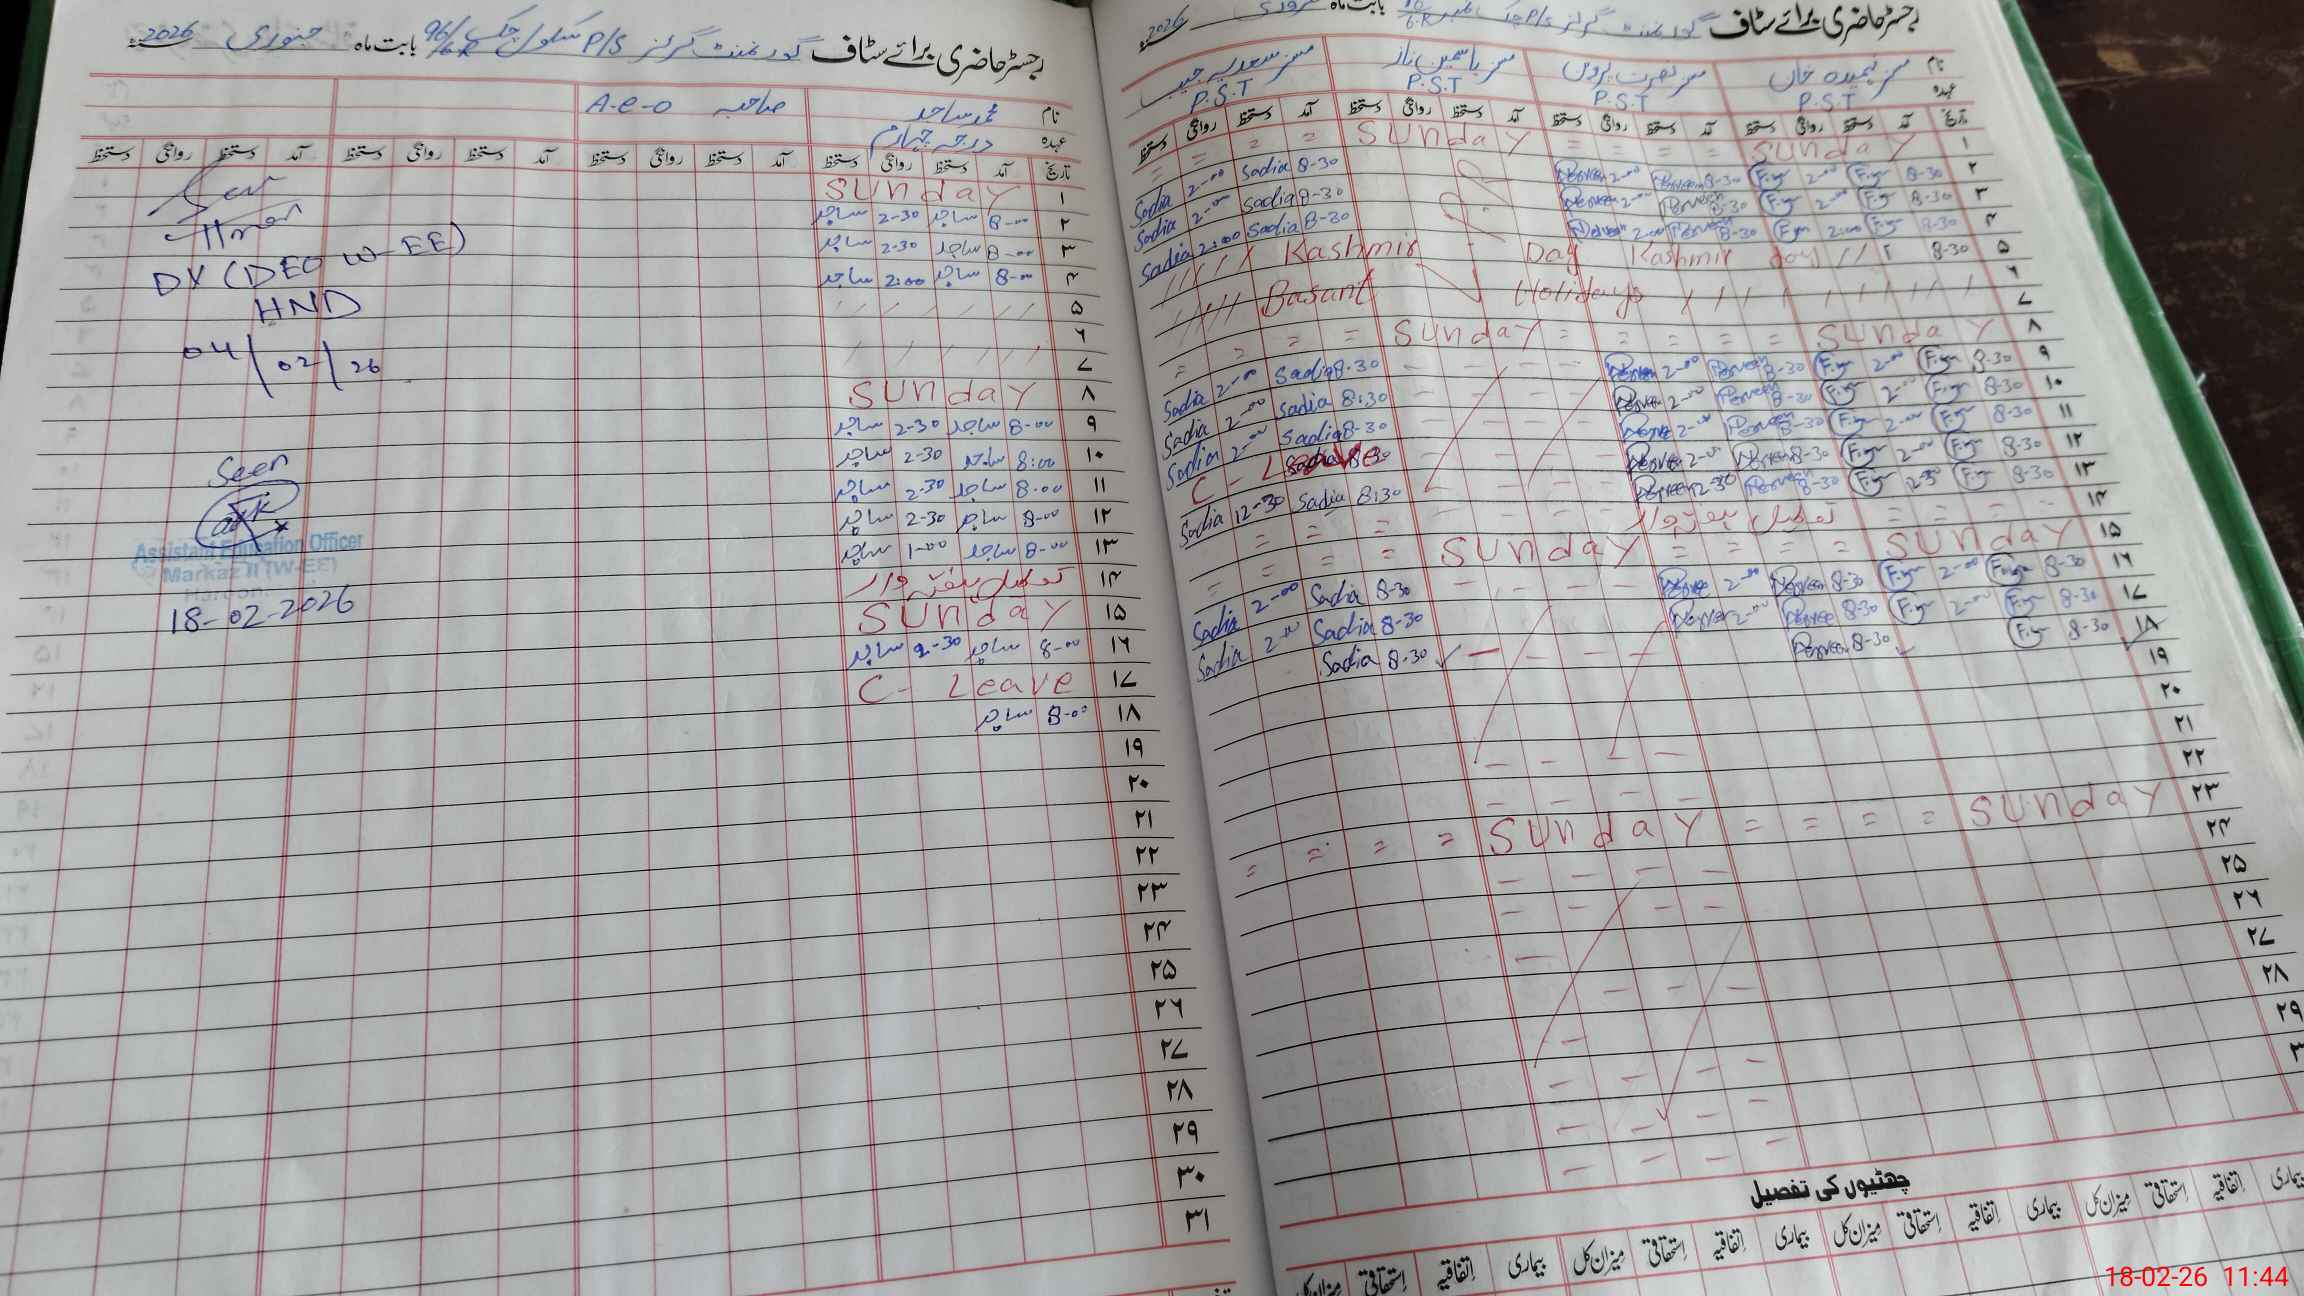 رجسٹر حاضری برائے سٹاف گورنمنٹ گرلز P/S سکول چک 96/6R بابت ماہ جنوری 2026
نام محمد ساجد صاحبہ A-e-o
عہدہ درجہ چہارم
تاریخ آمد دستخط روانگی دستخط آمد دستخط روانگی دستخط آمد دستخط روانگی دستخط آمد دستخط روانگی دستخط
۱ SUnday
۲ 8-00 ساجد 2-30 ساجد
۳ 8-00 ساجد 2-30 ساجد
۴ 8-00 ساجد 2:00 ساجد
۵ / / / / / /
۶
۷ / / / / / /
۸ SUnday
۹ 8-00 ساجد 2-30 ساجد
۱۰ 8:00 ساجد 2-30 ساجد
۱۱ 8-00 ساجد 2-30 ساجد
۱۲ 8-00 ساجد 2-30 ساجد
۱۳ 8-00 ساجد 1-00 ساجد
۱۴ تعطیل ہفتہ وار
۱۵ SUnday
۱۶ 8-00 ساجد 2-30 ساجد
۱۷ C- Leave
۱۸ 8-00 ساجد
۱۹
۲۰
۲۱
۲۲
۲۳
۲۴
۲۵
۲۶
۲۷
۲۸
۲۹
۳۰
۳۱
DY (DEO W-EE)
HND
04/02/26
Seen
Assistant Education Officer
Markaz II (W-EE)
Haroon
18-02-2026
رجسٹر حاضری برائے سٹاف گورنمنٹ گرلز P/S چک نمبر بابت ماہ فروری 2026
نام مسز فہمیدہ خان مسز نصرت پروین مسز یاسمین ناز مسز سعدیہ
عہدہ P.S.T P.S.T P.S.T P.S.T
تاریخ آمد دستخط روانگی دستخط آمد دستخط روانگی دستخط آمد دستخط روانگی دستخط آمد دستخط روانگی دستخط
۱ SUnday = = = = SUnday = = = =
۲ 8-30 2-00 8-30 Perveen 2-00 Perveen 8-30 Sadia 2-00 Sadia
۳ 8-30 2-00 8-30 Perveen 2-00 Perveen 8-30 Sadia 2-00 Sadia
۴ 8-30 2:00 8-30 Perveen 2:00 Perveen 8-30 Sadia 2:00 Sadia
۵ 8-30 Kashmir Day Kashmir day
۶
۷ Basant Holidays
۸ SUnday = = = = SUnday = = = =
۹ 8-30 2-00 8-30 Perveen 2-00 Perveen 8-30 Sadia 2-00 Sadia
۱۰ 8-30 2-00 8-30 Perveen 2-00 Perveen 8:30 Sadia 2-00 Sadia
۱۱ 8-30 2-00 8-30 Perveen 2-00 Perveen 8-30 Sadia 2-00 Sadia
۱۲ 8-30 2-00 8-30 Perveen 2-00 Perveen C - Leave
۱۳ 8-30 12-30 8-30 Perveen 12-30 Perveen 8:30 Sadia 12-30 Sadia
۱۴ = = = = تعطیل ہفتہ وار = = =
۱۵ SUnday = = = = SUnday = = = =
۱۶ 8-30 2-00 8-30 Perveen 2-00 Perveen 8-30 Sadia 2-00 Sadia
۱۷ 8-30 2-00 8-30 Perveen 2-00 Perveen 8-30 Sadia 2-00 Sadia
۱۸ 8-30 8-30 Perveen 8-30 Sadia
۱۹
۲۰
۲۱
۲۲
۲۳ SUnday = = = = SUnday = = = =
۲۴
۲۵
۲۶
۲۷
۲۸
۲۹
۳
چھٹیوں کی تفصیل
بیماری اتفاقیہ استحقاقی میزان کل بیماری اتفاقیہ استحقاقی میزان کل بیماری اتفاقیہ استحقاقی میزان کل بیماری اتفاقیہ استحقاقی میزان کل
18-02-26 11:44